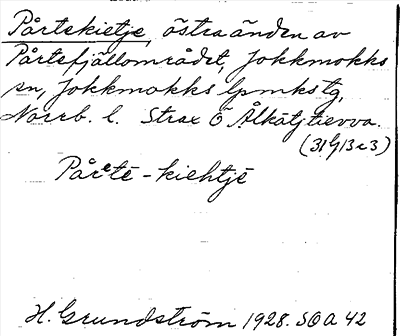 Pårtekietje, östra änden av
Pårtefjällområdet, Jokkmokks
sn, Jokkmokks lpmkstg,
Norrb. l. Strax Ö Ålkatjtievva.
(31G13c3)
Pårete - kiehtje
H. Grundström 1928. SOA 42